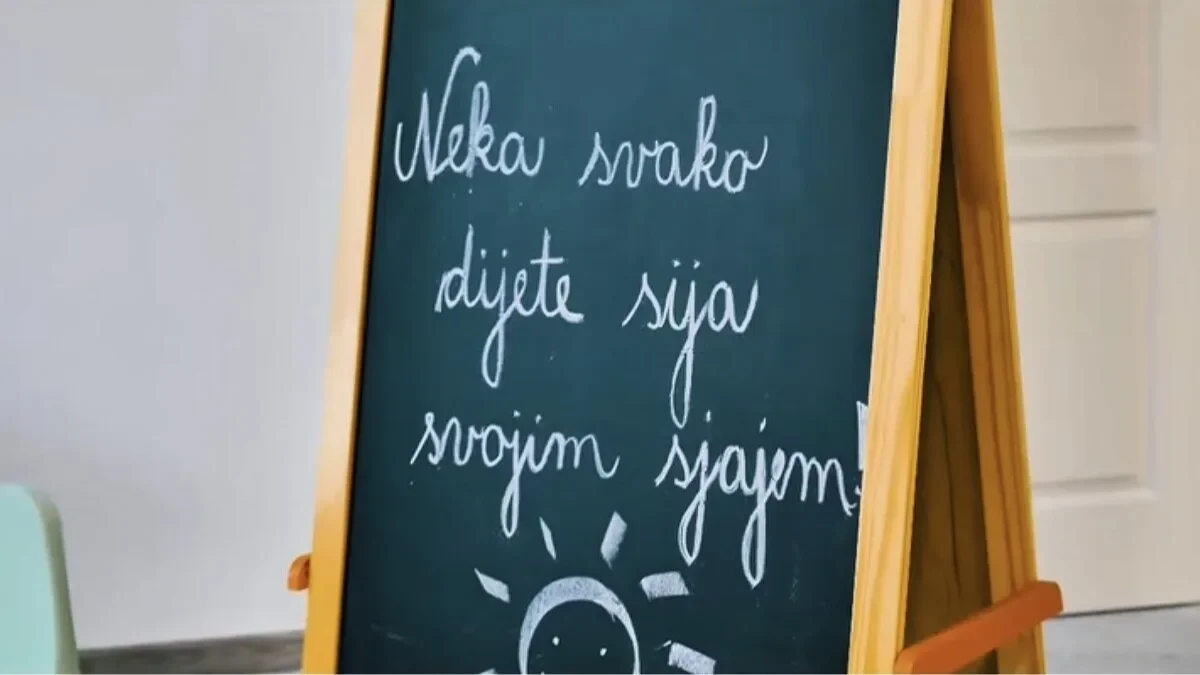 Neka svako
dijete sija
svojim sjajem!